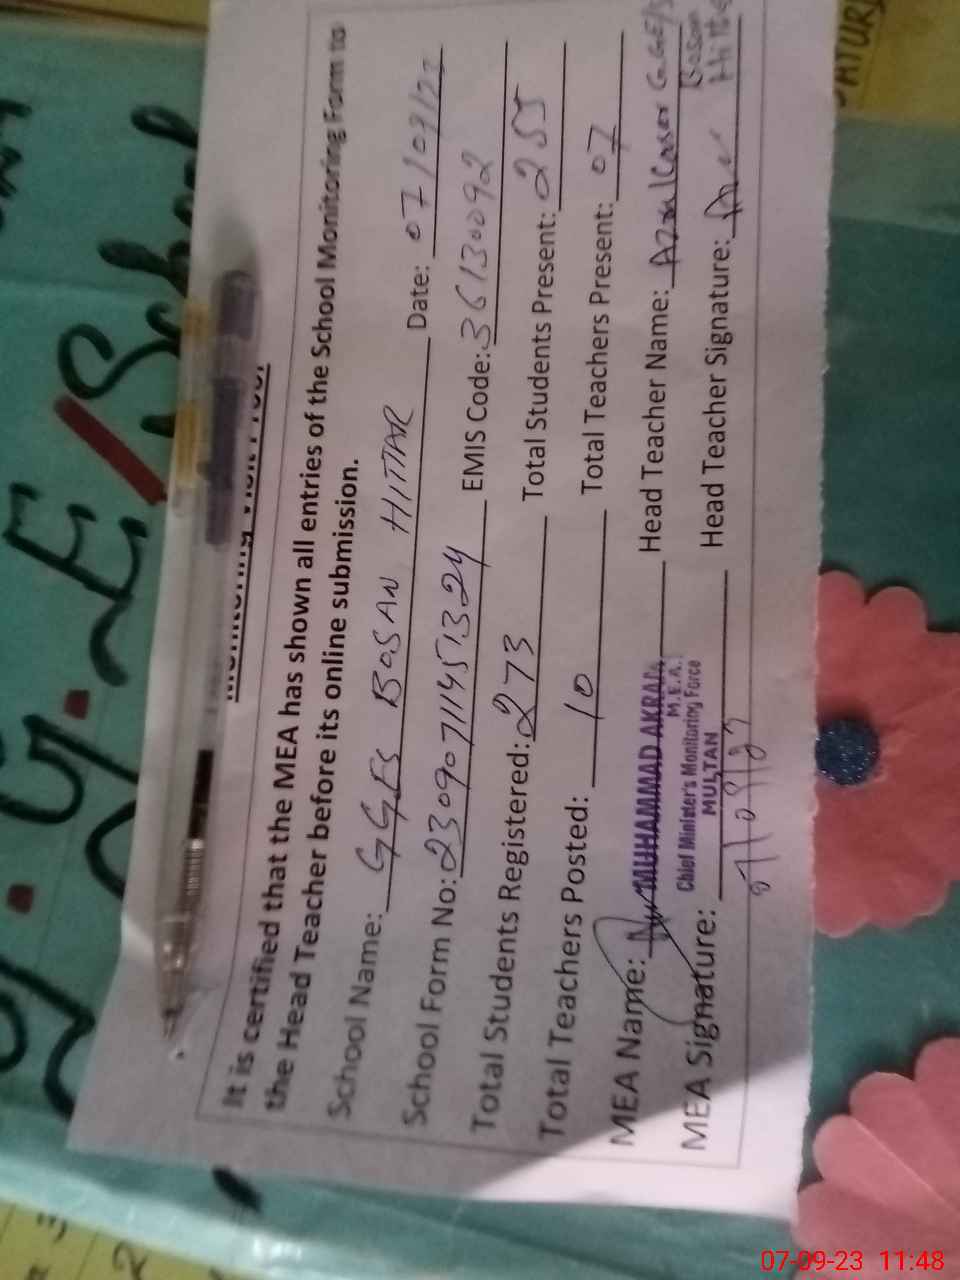 Monitoring Visit Proof
It is certified that the MEA has shown all entries of the School Monitoring Form to
the Head Teacher before its online submission.
School Name: GGES BOSAN HITTAR Date: 07/09/23
School Form No: 23090711451324 EMIS Code: 36130092
Total Students Registered: 273 Total Students Present: 255
Total Teachers Posted: 10 Total Teachers Present: 07
MEA Name: MUHAMMAD AKRAM Head Teacher Name: GGE/S
M.E.A. Bosan
Chief Minister's Monitoring Force Hittar
MULTAN
MEA Signature: Head Teacher Signature:
07/09/23
G.G.E/School
07-09-23 11:48